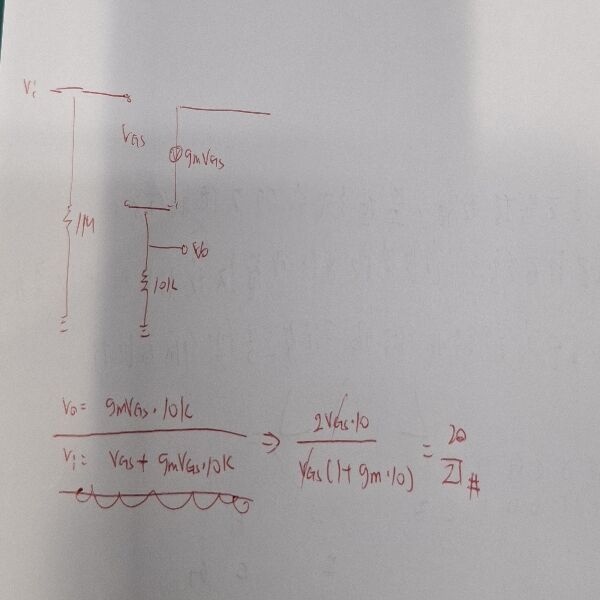 Vi
VGS
gmVGS
1M
Vo
10K
Vo= gmVGS·10K
Vi= VGS+gmVGS·10K
⇒ 2VGS·10 / VGS(1+gm·10) = 20/21 #